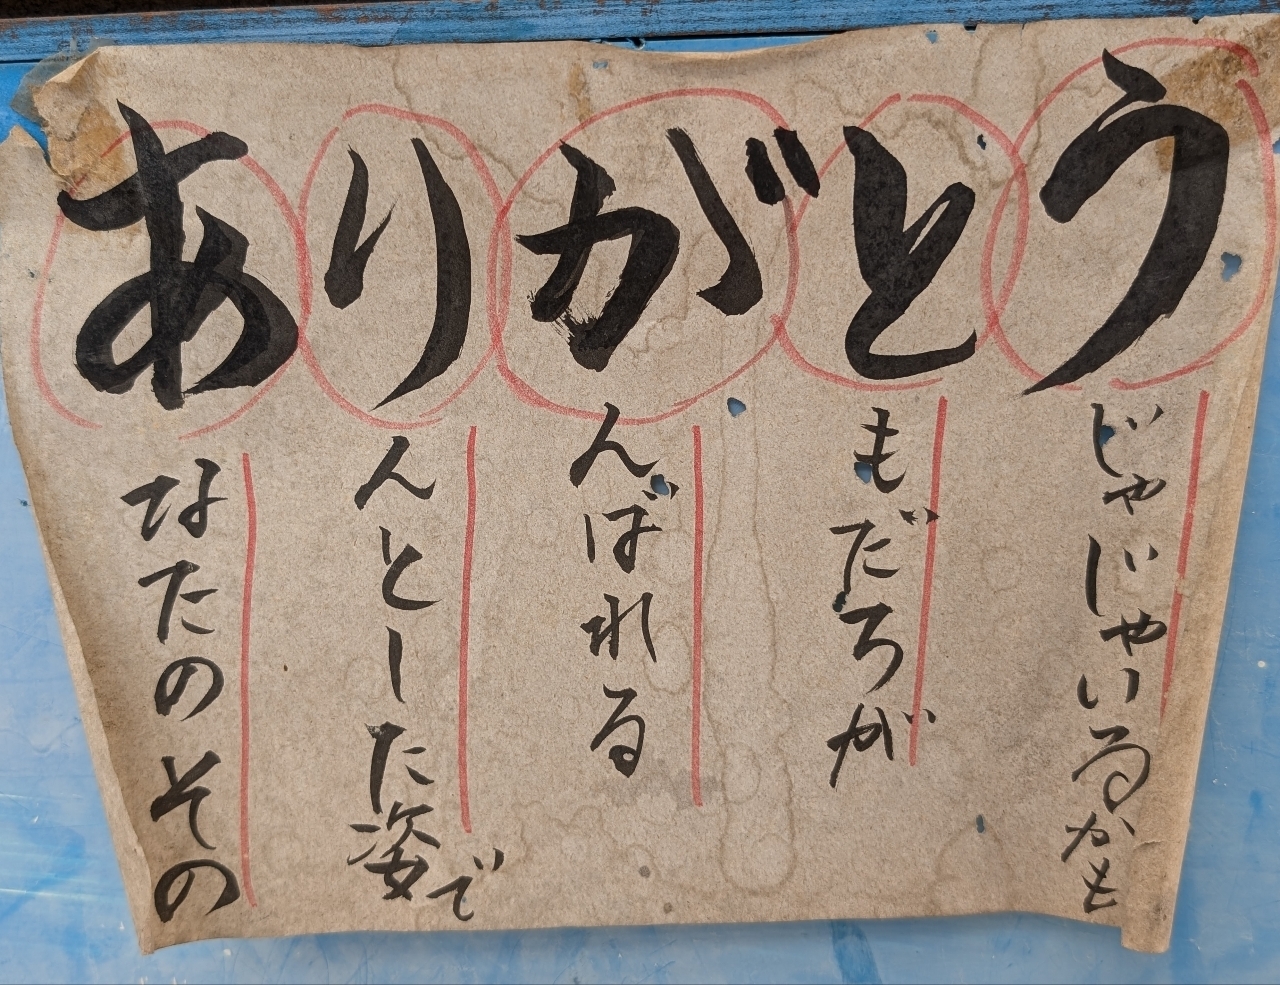 あなたの その
りんとした姿で
がんばれる
ともだちが
うじゃじゃいるかも